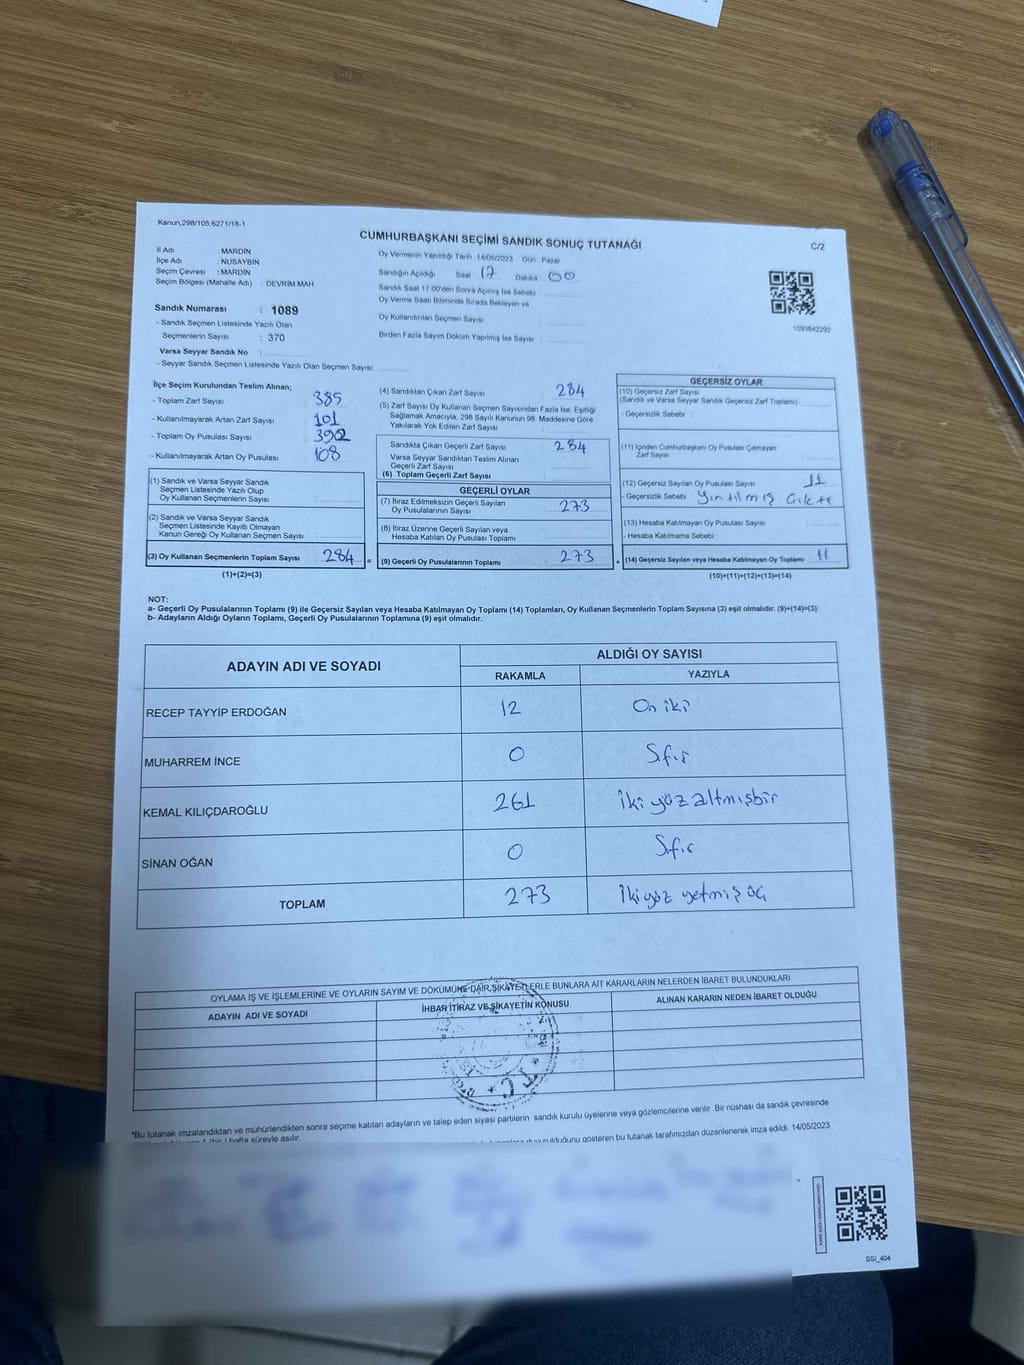 Kanun,298/105,6271/18-1
CUMHURBAŞKANI SEÇİMİ SANDIK SONUÇ TUTANAĞI
C/2
İl Adı : MARDİN
İlçe Adı : NUSAYBİN
Seçim Çevresi : MARDİN
Seçim Bölgesi (Mahalle Adı) : DEVRİM MAH.
Oy Vermenin Yapıldığı Tarih : 14/05/2023 Gün : Pazar
Sandığın Açıldığı Saat : 17 Dakika : 00
Sandık Saat 17:00'den Sonra Açımış İse Sebebi :
Oy Verme Saati Bitiminde Sırada Bekleyen ve
Oy Kullandırılan Seçmen Sayısı :
Birden Fazla Sayım Döküm Yapılmış İse Sayısı :
1093842292
Sandık Numarası : 1089
- Sandık Seçmen Listesinde Yazılı Olan
Seçmenlerin Sayısı : 370
Varsa Seyyar Sandık No :
- Seyyar Sandık Seçmen Listesinde Yazılı Olan Seçmen Sayısı:
İlçe Seçim Kurulundan Teslim Alınan;
- Toplam Zarf Sayısı : 385
- Kullanılmayarak Artan Zarf Sayısı : 101
- Toplam Oy Pusulası Sayısı : 392
- Kullanılmayarak Artan Oy Pusulası : 108
(1) Sandık ve Varsa Seyyar Sandık
Seçmen Listesinde Yazılı Olup
Oy Kullanan Seçmenlerin Sayısı :
(2) Sandık ve Varsa Seyyar Sandık
Seçmen Listesinde Kayıtlı Olmayan
Kanun Gereği Oy Kullanan Seçmen Sayısı :
(3) Oy Kullanan Seçmenlerin Toplam Sayısı : 284 =
(1)+(2)=(3)
(4) Sandıktan Çıkan Zarf Sayısı : 284
(5) Zarf Sayısı Oy Kullanan Seçmen Sayısından Fazla İse, Eşitliği
Sağlamak Amacıyla, 298 Sayılı Kanunun 98. Maddesine Göre
Yakılarak Yok Edilen Zarf Sayısı :
Sandıkta Çıkan Geçerli Zarf Sayısı : 284
Varsa Seyyar Sandıktan Teslim Alınan
Geçerli Zarf Sayısı :
(6) Toplam Geçerli Zarf Sayısı :
GEÇERLİ OYLAR
(7) İtiraz Edilmeksizin Geçerli Sayılan
Oy Pusulalarının Sayısı : 273
(8) İtiraz Üzerine Geçerli Sayılan veya
Hesaba Katılan Oy Pusulası Toplamı :
(9) Geçerli Oy Pusulalarının Toplamı : 273 +
GEÇERSİZ OYLAR
(10) Geçersiz Zarf Sayısı
(Sandık ve Varsa Seyyar Sandık Geçersiz Zarf Toplamı) :
- Geçersizlik Sebebi :
(11) İçinden Cumhurbaşkanı Oy Pusulası Çıkmayan
Zarf Sayısı :
(12) Geçersiz Sayılan Oy Pusulası Sayısı : 11
- Geçersizlik Sebebi : Yırtılmış Çıktı
(13) Hesaba Katılmayan Oy Pusulası Sayısı :
- Hesaba Katılmama Sebebi :
(14) Geçersiz Sayılan veya Hesaba Katılmayan Oy Toplamı : 11
(10)+(11)+(12)+(13)=(14)
NOT:
a- Geçerli Oy Pusulalarının Toplamı (9) ile Geçersiz Sayılan veya Hesaba Katılmayan Oy Toplamı (14) Toplamları, Oy Kullanan Seçmenlerin Toplam Sayısına (3) eşit olmalıdır. (9)+(14)=(3)
b- Adayların Aldığı Oyların Toplamı, Geçerli Oy Pusulalarının Toplamına (9) eşit olmalıdır.
ADAYIN ADI VE SOYADI
ALDIĞI OY SAYISI
RAKAMLA YAZIYLA
RECEP TAYYİP ERDOĞAN 12 On iki
MUHARREM İNCE 0 Sıfır
KEMAL KILIÇDAROĞLU 261 İki yüz altmışbir
SİNAN OĞAN 0 Sıfır
TOPLAM 273 İki yüz yetmiş üç
OYLAMA İŞ VE İŞLEMLERİNE VE OYLARIN SAYIM VE DÖKÜMÜNE DAİR ŞİKAYETLERLE BUNLARA AİT KARARLARIN NELERDEN İBARET BULUNDUKLARI
ADAYIN ADI VE SOYADI İHBAR İTİRAZ VE ŞİKAYETİN KONUSU ALINAN KARARIN NEDEN İBARET OLDUĞU
T.C.
*Bu tutanak imzalandıktan ve mühürlendikten sonra seçime katılan adayların ve talep eden siyasi partilerin sandık kurulu üyelerine veya gözlemcilerine verilir. Bir nüshası da sandık çevresinde
1 (bir) hafta süreyle asılır. duyurulduğunu gösteren bu tutanak tarafımızdan düzenlenerek imza edildi. 14/05/2023
SSİ_404